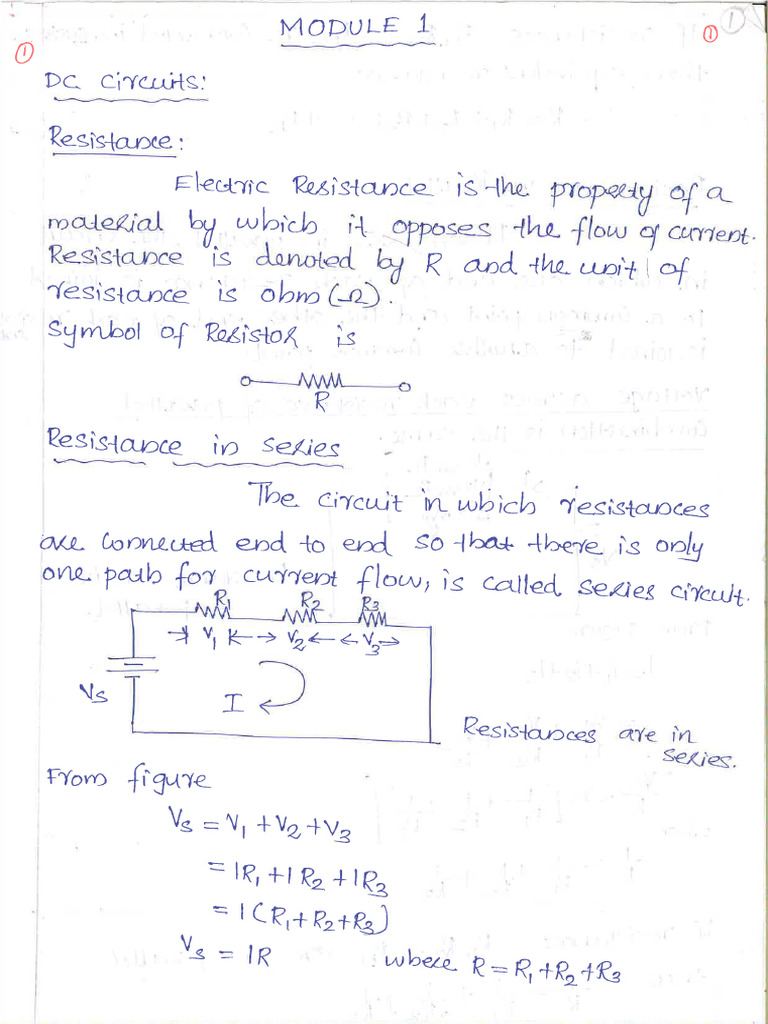 MODULE 1
1
1
1
DC Circuits:
Resistance:
Electric Resistance is the property of a
material by which it opposes the flow of current.
Resistance is denoted by R and the unit of
resistance is ohm (Ω).
Symbol of Resistor is
R
Resistance in series
The circuit in which resistances
are connected end to end so that there is only
one path for current flow, is called series circuit.
R1 R2 R3
V1 V2 V3
Vs
I
Resistances are in
series.
From figure
Vs = V1 + V2 + V3
= IR1 + IR2 + IR3
= I (R1 + R2 + R3)
Vs = IR where R = R1 + R2 + R3